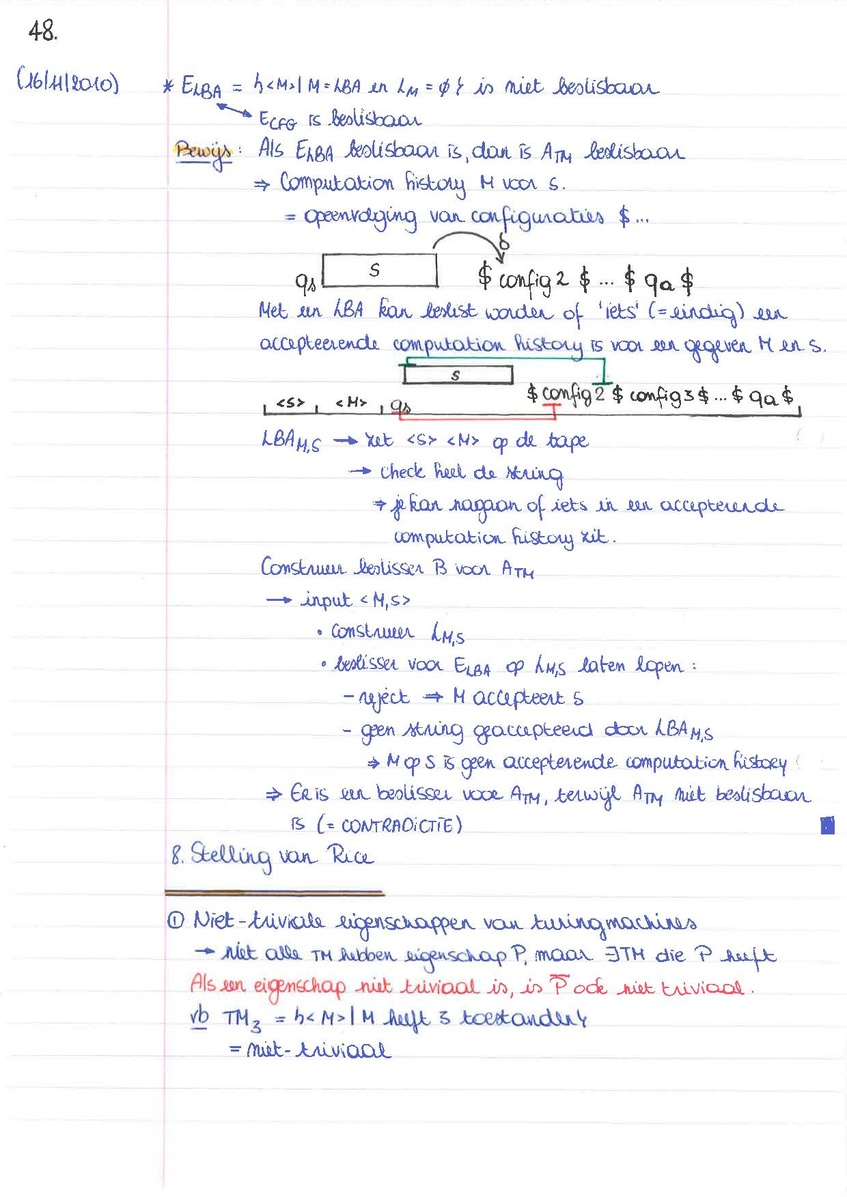 48.
(16/11/2010) * E_LBA = {<M> | M = LBA en L_M = ∅} is niet beslisbaar
E_CFG is beslisbaar
Bewijs: Als E_LBA beslisbaar is, dan is A_TM beslisbaar
⇒ Computation history M voor s.
= opeenvolging van configuraties $...
δ
qs s $ config 2 $ ... $ qa $
Met een LBA kan beslist worden of 'iets' (= eindig) een
accepteerende computation history is voor een gegeven M en s.
s
<s> <M> qs $ config 2 $ config 3 $ ... $ qa $
LBA_M,S → zet <s> <M> op de tape
→ check heel de string
⇒ je kan nagaan of iets in een accepterende
computation history zit.
Construeer beslisser B voor A_TM
→ input <M,s>
• construeer L_M,S
• beslisser voor E_LBA op L_M,S laten lopen :
- reject ⇒ M accepteert s
- geen string geaccepteerd door LBA_M,S
⇒ M op S is geen accepterende computation history
⇒ Er is een beslisser voor A_TM, terwijl A_TM niet beslisbaar
is (= CONTRADICTIE)
8. Stelling van Rice
① Niet-triviale eigenschappen van turingmachines
→ niet alle TM hebben eigenschap P, maar ∃TM die P heeft
Als een eigenschap niet triviaal is, is P̅ ook niet triviaal.
vb TM₃ = {<M> | M heeft 3 toestanden}
= niet-triviaal